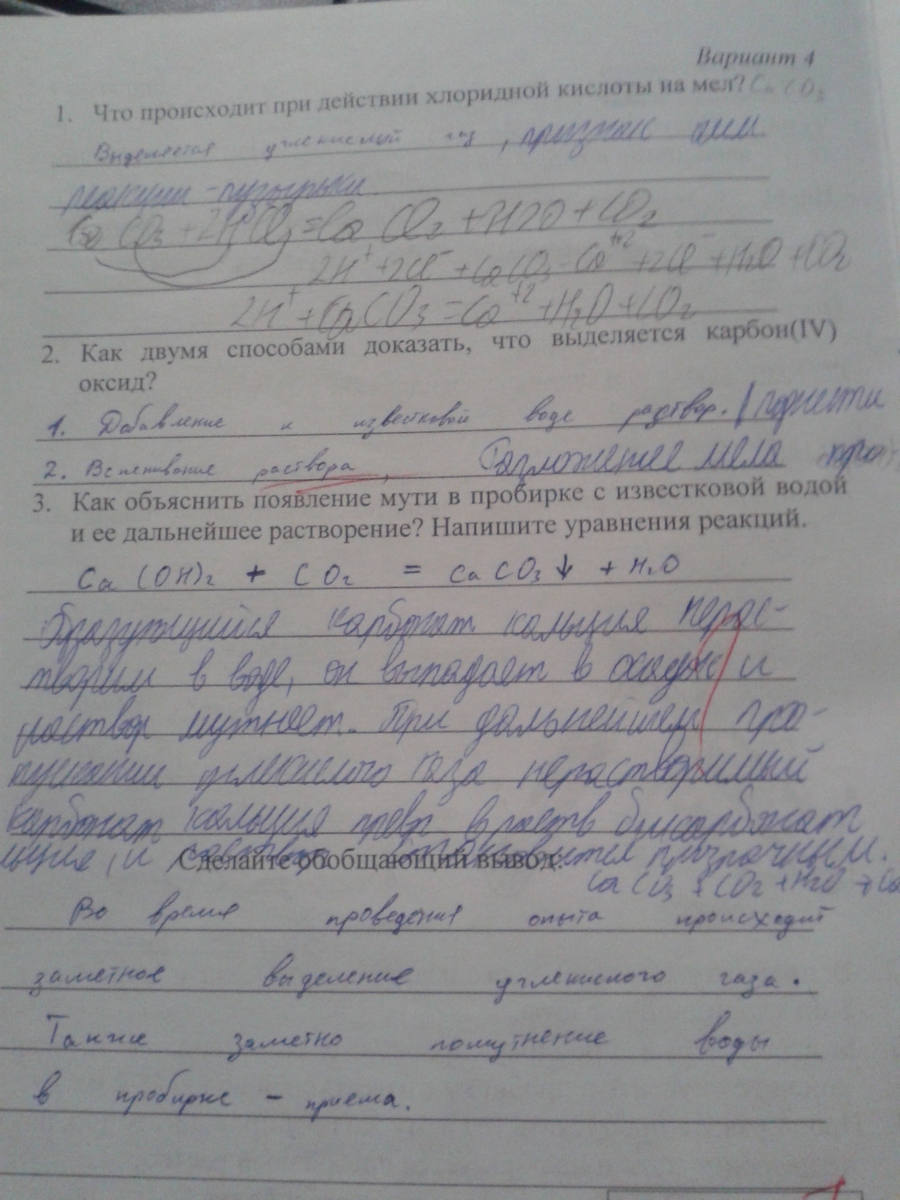 Вариант 4
1. Что происходит при действии хлоридной кислоты на мел? CaCO3
Выделяется углекислый газ, признак
реакции - пузырьки
CO3 + 2H = Ca Cl2 + H2O + CO2
2H+ + 2Cl- + CaCO3 = Ca+2 + 2Cl- + H2O + CO2
2H+ + CaCO3 = Ca+2 + H2O + CO2
2. Как двумя способами доказать, что выделяется карбон(IV)
оксид?
1. Добавление к известковой воде раствор. поднести
2. Вспенивание раствора, Разложение мела
3. Как объяснить появление мути в пробирке с известковой водой
и ее дальнейшее растворение? Напишите уравнения реакций.
Ca (OH)2 + CO2 = CaCO3↓ + H2O
Образующийся карбонат кальция нерас-
творим в воде, он выпадает в осадок и
раствор мутнеет. При дальнейшем про-
пускании углекислого газа нерастворимый
карбонат кальция прев в раств бикарбонат
и раствор становится прозрачным.
Сделайте обобщающий вывод.
CaCO3 + CO2 + H2O → Ca
Во время проведения опыта происходит
заметное выделение углекислого газа.
Также заметно помутнение воды
в пробирке - приема.